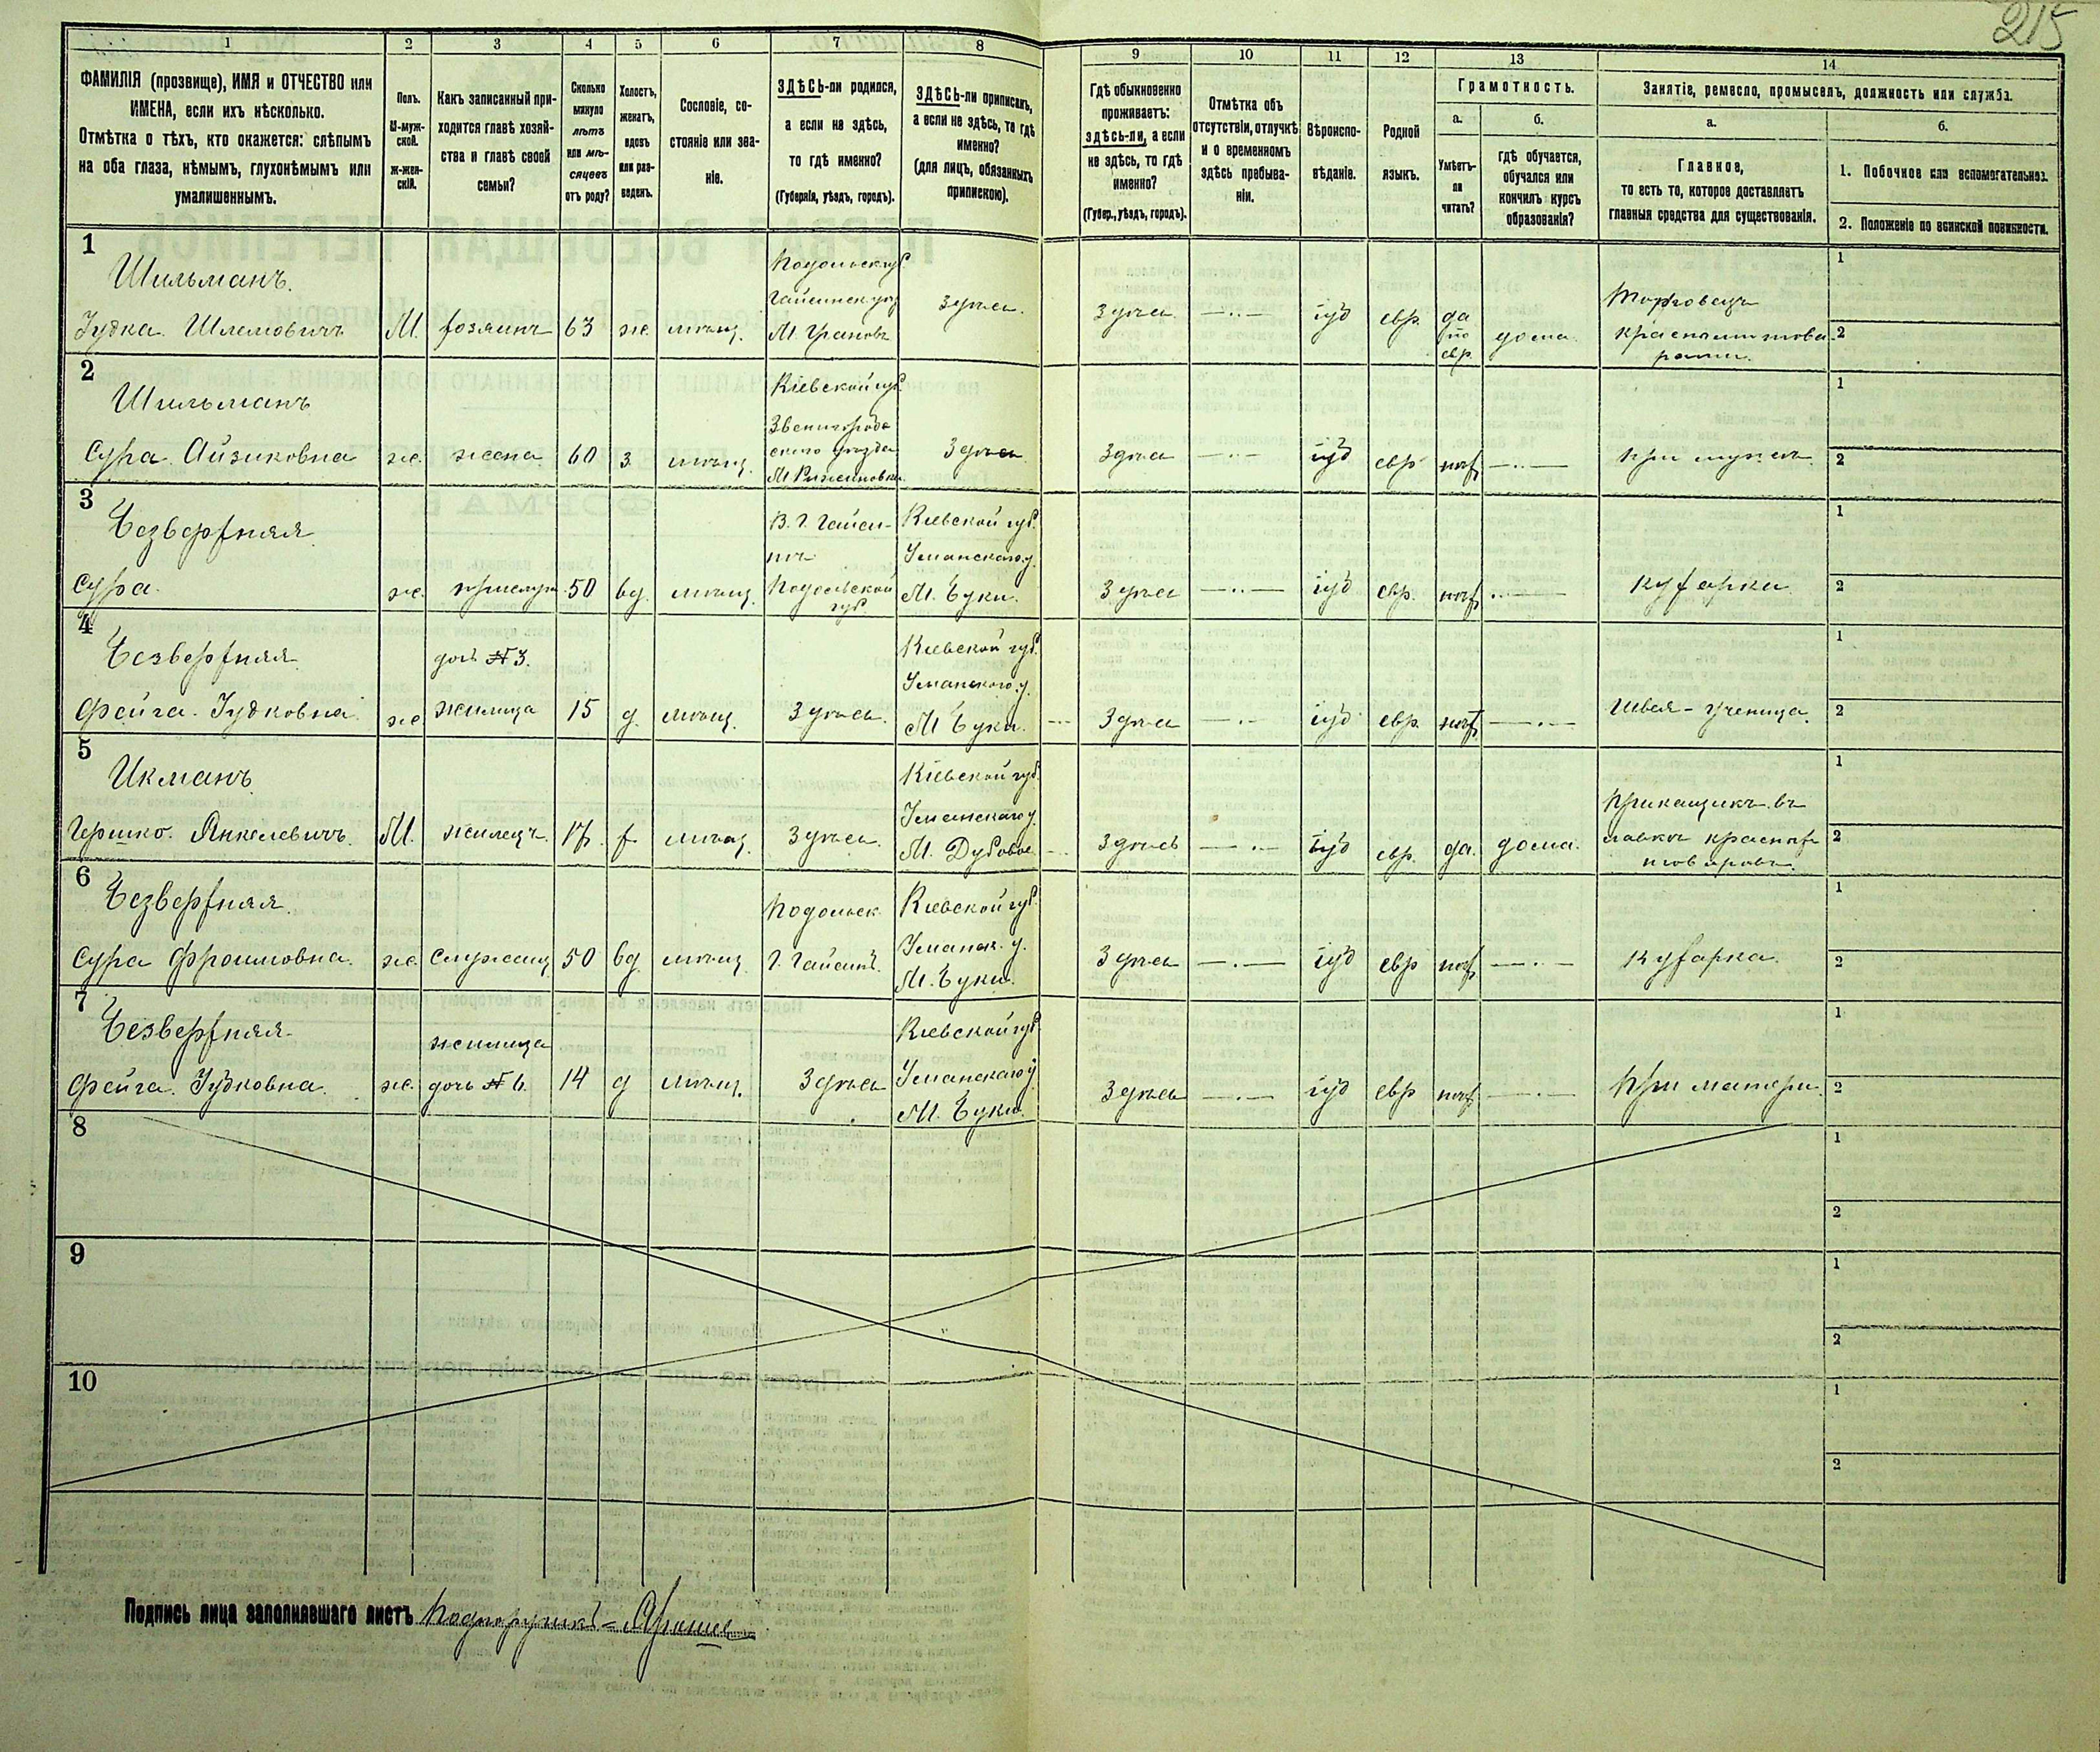 215
1
2
3
4
5
6
7
8
9
10
11
12
13
14
ФАМИЛІЯ (прозвище), ИМЯ и ОТЧЕСТВО или
ИМЕНА, если ихъ нѣсколько.
Отмѣтка о тѣхъ, кто окажется: слѣпымъ
на оба глаза, нѣмымъ, глухонѣмымъ или
умалишеннымъ.
Полъ.
М-муж-
ской.
ж-жен-
скій.
Какъ записанный при-
ходится главѣ хозяй-
ства и главѣ своей
семьи?
Сколько
минуло
лѣтъ
или мѣ-
сяцевъ
отъ роду?
Холостъ,
женатъ,
вдовъ
или раз-
веденъ.
Сословіе, со-
стояніе или зва-
ніе.
ЗДѢСЬ-ли родился,
а если не здѣсь,
то гдѣ именно?
(Губернія, уѣздъ, городъ).
ЗДѢСЬ-ли приписанъ,
а если не здѣсь, то гдѣ
именно?
(для лицъ, обязанныхъ
припискою).
Гдѣ обыкновенно
проживаетъ:
здѣсь-ли, а если
не здѣсь, то гдѣ
именно?
(Губер., уѣздъ, городъ).
Отмѣтка объ
отсутствіи, отлучкѣ
и о временномъ
здѣсь пребыва-
ніи.
Вѣроиспо-
вѣданіе.
Родной
языкъ.
Грамотность.
а.
Умѣетъ-
ли
читать?
б.
Гдѣ обучается,
обучался или
кончилъ курсъ
образованія?
Занятіе, ремесло, промыселъ, должность или служба.
а.
Главное,
то есть то, которое доставляетъ
главныя средства для существованія.
б.
1. Побочное или вспомогательное.
2. Положеніе по воинской повинности.
1
Шильманъ.
Іудка Шлемовичъ
М.
хозяинъ
63
ж.
мѣщ.
Подольск губ.
Гайсинск уѣз
М. Грановъ
Здѣсь.
Здѣсь
іуд
евр.
да
по
евр.
дома.
Торговецъ
красными това-
рами.
1
2
2
Шильманъ
Сура Айзиковна
ж.
жена
60
з
мѣщ.
Кіевской губ.
Звенигород-
скаго уѣзда
М Рижановка.
Здѣсь
Здѣсь
іуд
евр
нѣт
При мужѣ
1
2
3
Безверхняя
Сура.
ж.
прислуга
50
вд.
мѣщ.
В. г. Гайси-
нѣ
Подольской
губ.
Кіевской губ.
Уманскаго у.
М. Буки.
Здѣсь
іуд
евр.
нѣт
Кухарка
1
2
4
Безверхняя
Фейга Іудковна
ж
дочь № 3.
жилица
15
д.
мѣщ.
Здѣсь.
Кіевской губ.
Уманскаго у.
М Буки.
Здѣсь
іуд
евр.
нѣт
Швея - ученица.
1
2
5
Икманъ
Гершко Янкелевичъ.
М.
жилецъ
17
х
мѣщ.
Здѣсь.
Кіевской губ.
Уманскаго у.
М. Дубовое
Здѣсь
іуд
евр.
да.
дома.
Прикащикъ въ
лавкѣ красныхъ
товаровъ.
1
2
6
Безверхняя.
Сура Фроимовна.
ж.
служащ
50
вд.
мѣщ.
Подольск.
г. Гайсинъ.
Кіевской губ.
Уманск. у.
М. Буки.
Здѣсь
іуд
евр
нѣт
Кухарка.
1
2
7
Безверхняя
Фейга Іудковна.
ж.
жилица
дочь № 6.
14
д
мѣщ.
Здѣсь
Кіевской губ.
Уманскаго у
М. Буки.
Здѣсь
іуд
евр
нѣт
При матери
1
2
8
1
2
9
1
2
10
1
2
Подпись лица заполнявшаго листъ